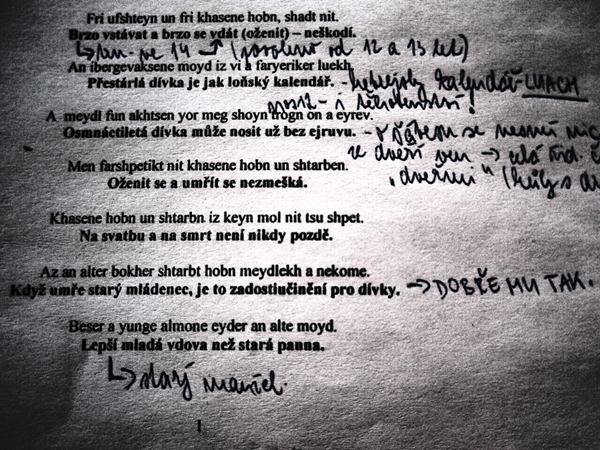 Fri ufshteyn un fri khasene hobn, shadt nit.
Brzo vstávat a brzo se vdát (oženit) – neškodí.
14 (povoleno od 12 a 13 let)
An ibergevaksene moyd iz vi a faryeriker luekh.
Přestárlá dívka je jak loňský kalendář. - kalendář - LUACH
A meydl fun akhtsen yor meg shoyn trogn on a eyrev.
Osmnáctiletá dívka může nosit už bez ejruvu. - se nesmí nic
ze dveří ven →
Men farshpetikt nit khasene hobn un shtarben.
Oženit se a umřít se nezmešká.
Khasene hobn un shtarbn iz keyn mol nit tsu shpet.
Na svatbu a na smrt není nikdy pozdě.
Az an alter bokher shtarbt hobn meydlekh a nekome.
Když umře starý mládenec, je to zadostiučinění pro dívky. → DOBŘE MU TAK.
Beser a yunge almone eyder an alte moyd.
Lepší mladá vdova než stará panna.
starý
1